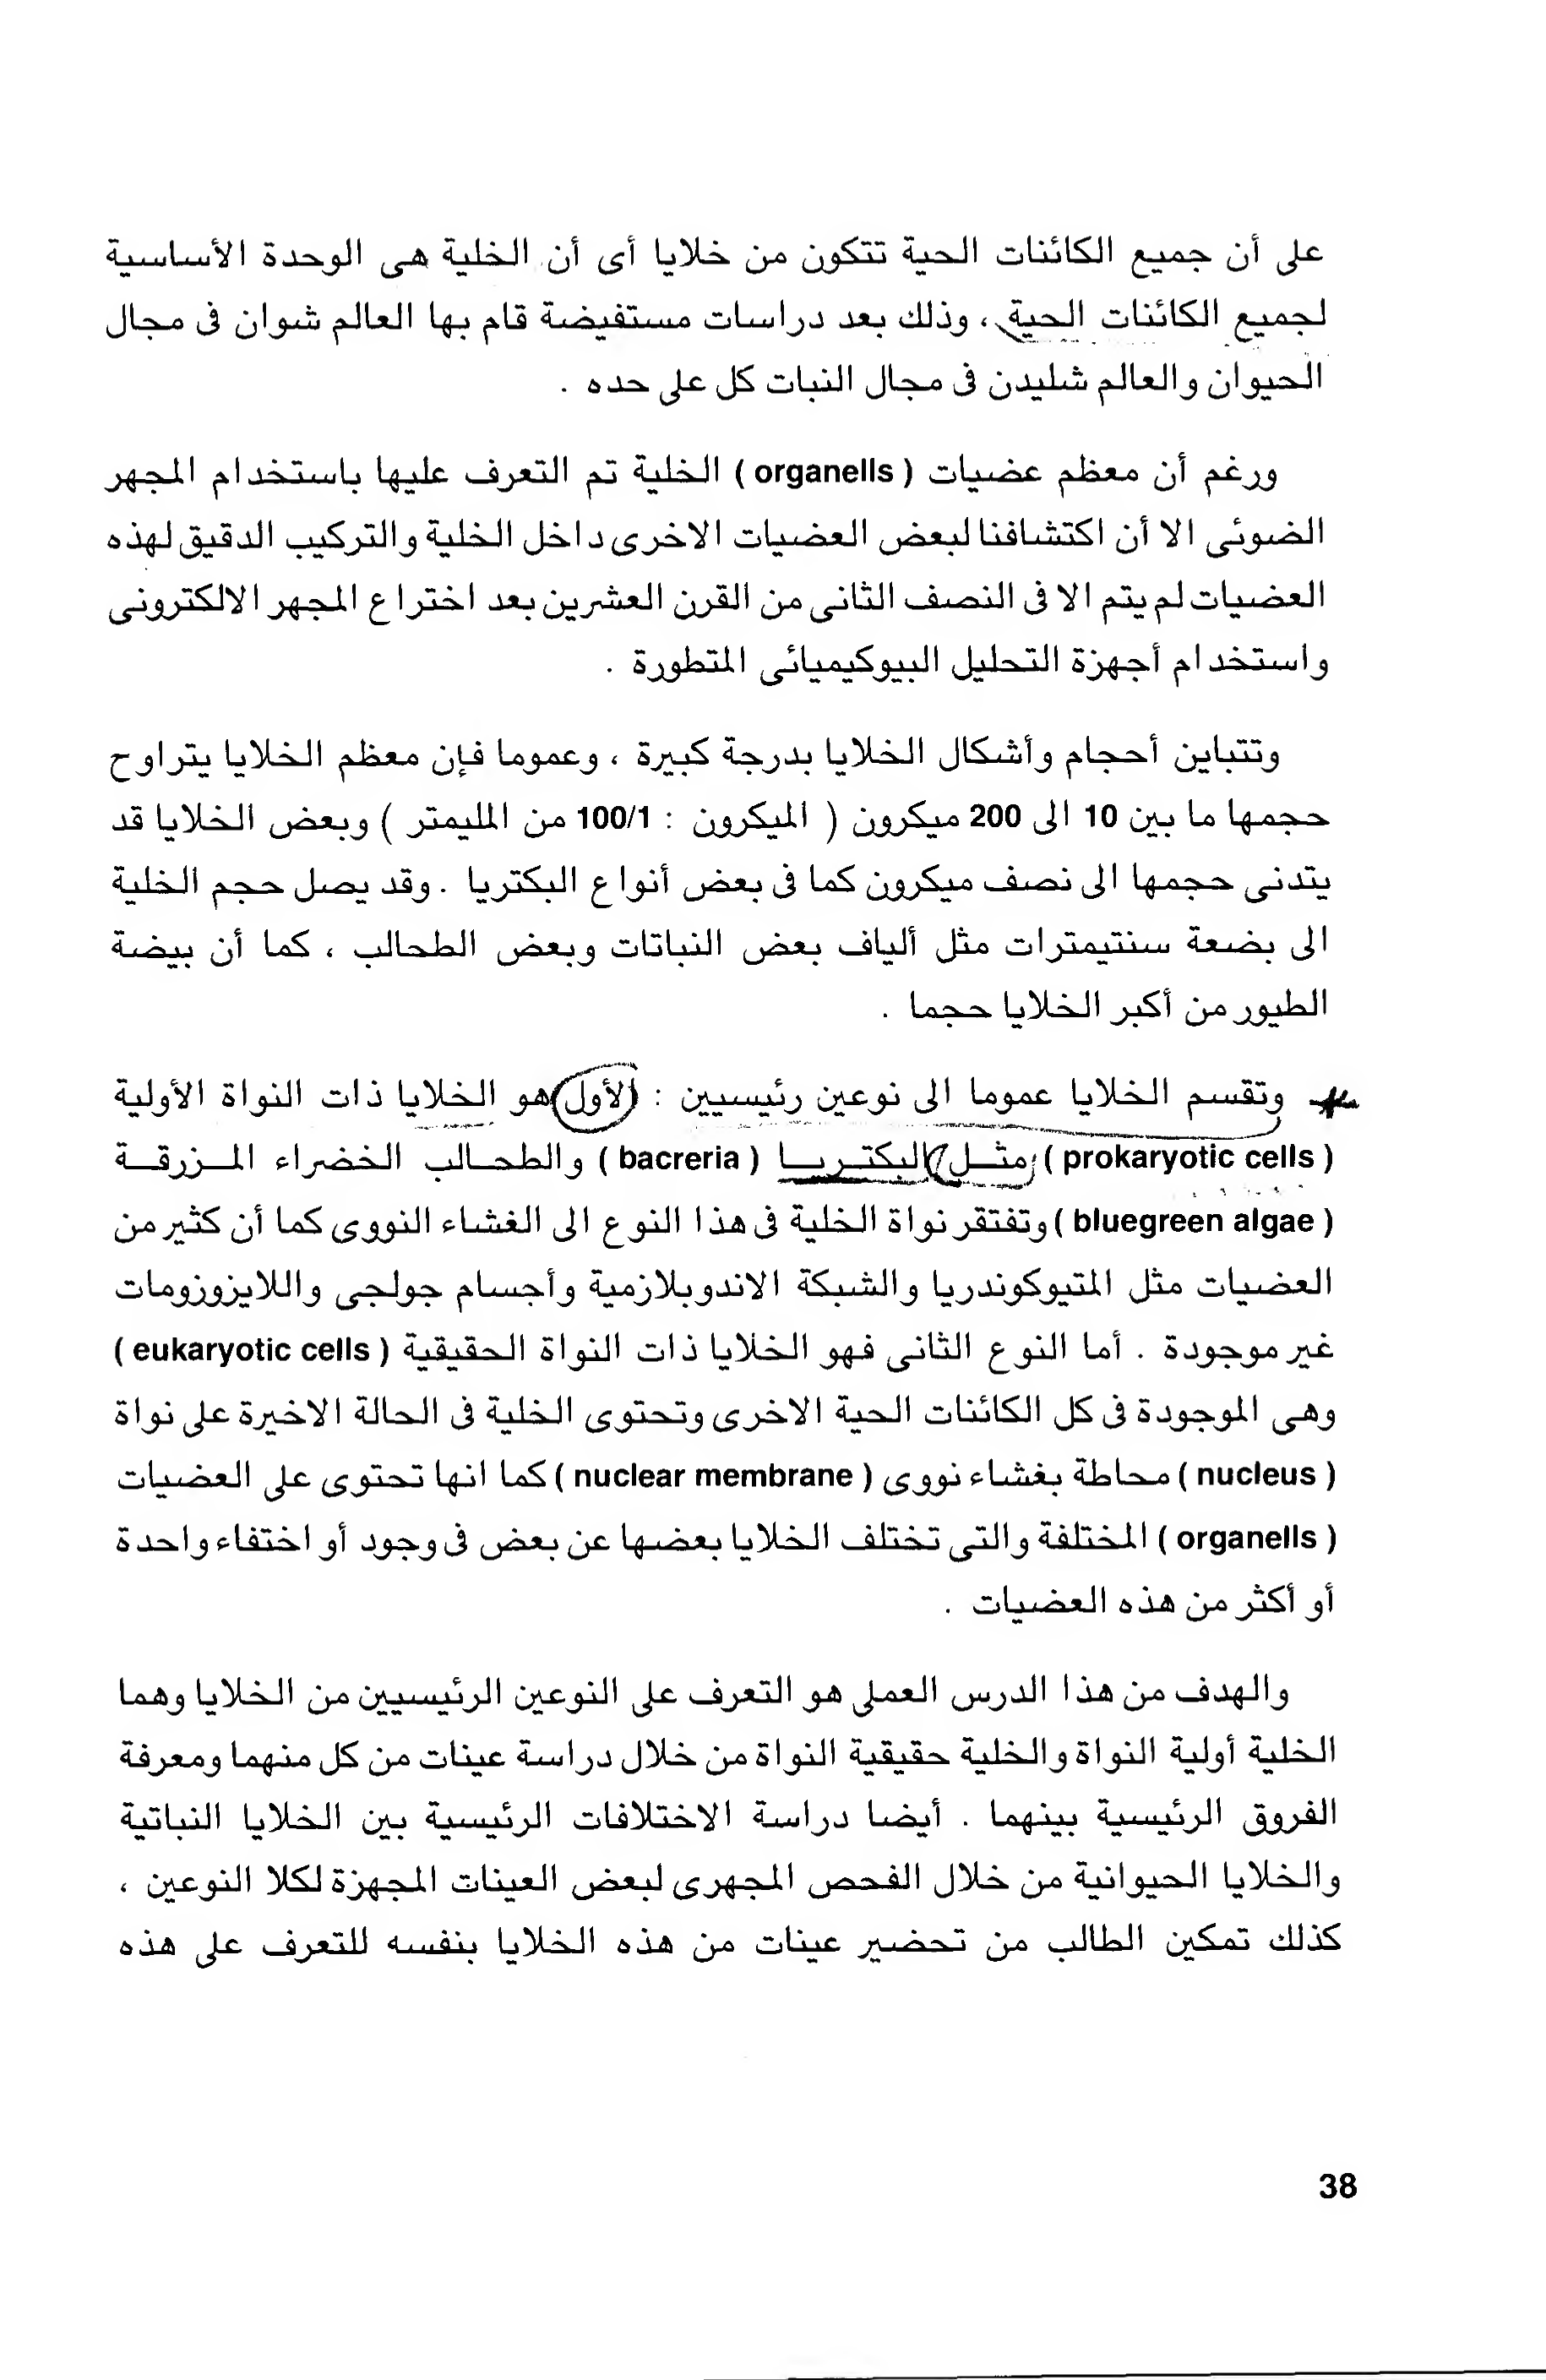 على أن جميع الكائنات الحية تتكون من خلايا أى أن الخلية هى الوحدة الأساسية
لجميع الكائنات الحية ، وذلك بعد دراسات مستفيضة قام بها العالم شوان فى مجال
الحيوان والعالم شليدن فى مجال النبات كل على حده .
ورغم أن معظم عضيات ( organells ) الخلية تم التعرف عليها باستخدام المجهر
الضوئى الا أن اكتشافنا لبعض العضيات الاخرى داخل الخلية والتركيب الدقيق لهذه
العضيات لم يتم الا فى النصف الثانى من القرن العشرين بعد اختراع المجهر الالكترونى
واستخدام أجهزة التحليل البيوكيميائى المتطورة .
وتتباين أحجام وأشكال الخلايا بدرجة كبيرة ، وعموما فإن معظم الخلايا يتراوح
حجمها ما بين 10 الى 200 ميكرون ( الميكرون : 100/1 من المليمتر ) وبعض الخلايا قد
يتدنى حجمها الى نصف ميكرون كما فى بعض أنواع البكتريا . وقد يصل حجم الخلية
الى بضعة سنتيمترات مثل ألياف بعض النباتات وبعض الطحالب ، كما أن بيضة
الطيور من أكبر الخلايا حجما .
وتقسم الخلايا عموما الى نوعين رئيسيين : الأول هو الخلايا ذات النواة الأولية
( prokaryotic cells ) مثل البكتريا ( bacreria ) والطحالب الخضراء المزرقة
( bluegreen algae ) وتفتقر نواة الخلية فى هذا النوع الى الغشاء النووى كما أن كثير من
العضيات مثل المتيوكوندريا والشبكة الاندوبلازمية وأجسام جولجى واللايزوزومات
غير موجودة . أما النوع الثانى فهو الخلايا ذات النواة الحقيقية ( eukaryotic cells )
وهى الموجودة فى كل الكائنات الحية الاخرى وتحتوى الخلية فى الحالة الاخيرة على نواة
( nucleus ) محاطة بغشاء نووى ( nuclear membrane ) كما انها تحتوى على العضيات
( organells ) المختلفة والتى تختلف الخلايا بعضها عن بعض فى وجود أو اختفاء واحدة
أو أكثر من هذه العضيات .
والهدف من هذا الدرس العملى هو التعرف على النوعين الرئيسيين من الخلايا وهما
الخلية أولية النواة والخلية حقيقية النواة من خلال دراسة عينات من كل منهما ومعرفة
الفروق الرئيسية بينهما . أيضا دراسة الاختلافات الرئيسية بين الخلايا النباتية
والخلايا الحيوانية من خلال الفحص المجهرى لبعض العينات المجهزة لكلا النوعين ،
كذلك تمكين الطالب من تحضير عينات من هذه الخلايا بنفسه للتعرف على هذه
38